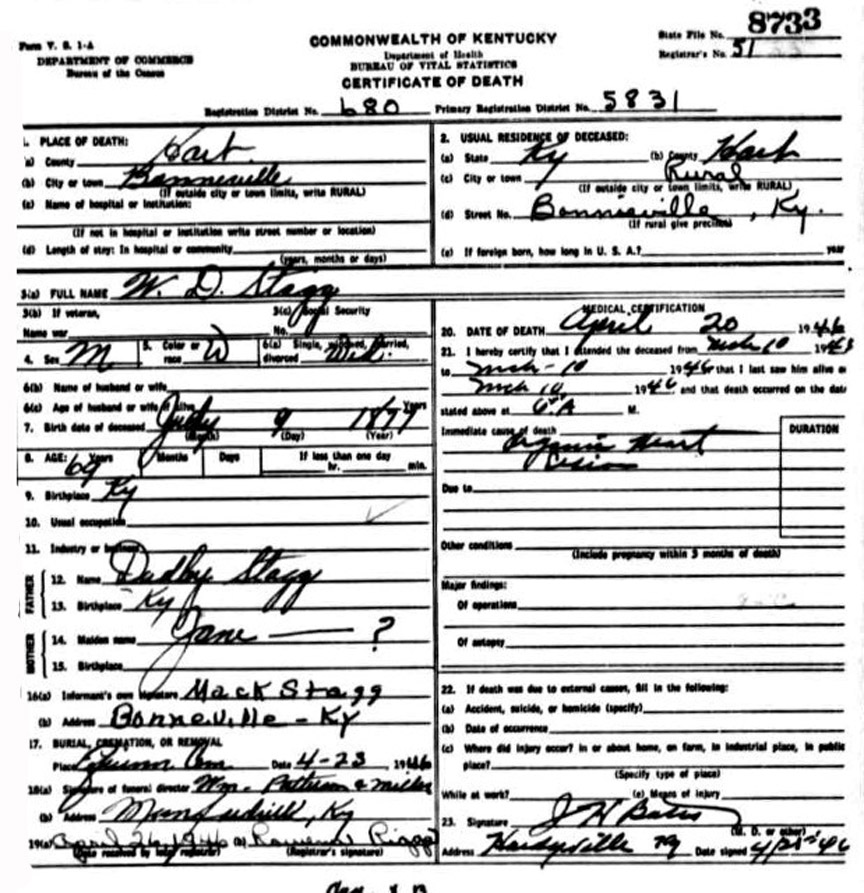 8733
Form V. S. 1-A
DEPARTMENT OF COMMERCE
Bureau of the Census
COMMONWEALTH OF KENTUCKY
Department of Health
BUREAU OF VITAL STATISTICS
CERTIFICATE OF DEATH
State File No.
Registrar's No. 51
Registration District No. 680 Primary Registration District No. 5831
1. PLACE OF DEATH:
(a) County Hart
(b) City or town Bonneville
(If outside city or town limits, write RURAL)
(c) Name of hospital or institution:
(If not in hospital or institution write street number or location)
(d) Length of stay: In hospital or community
(years, months or days)
2. USUAL RESIDENCE OF DECEASED:
(a) State Ky (b) County Hart
(c) City or town Rural
(If outside city or town limits, write RURAL)
(d) Street No. Bonnieville, Ky.
(If rural give precinct)
(e) If foreign born, how long in U. S. A.? year
3(a) FULL NAME W. D. Stagg
3(b) If veteran, 3(c) Social Security
Name war No.
4. Sex M 5. Color or race W 6(a) Single, widowed, married, divorced Wid.
6(b) Name of husband or wife
6(c) Age of husband or wife if alive Years
7. Birth date of deceased July 9 1877
(Month) (Day) (Year)
8. AGE: Years 69 Months Days If less than one day
hr. min.
9. Birthplace Ky
10. Usual occupation
11. Industry or business
FATHER
12. Name Dudley Stagg
13. Birthplace Ky
MOTHER
14. Maiden name Jane — ?
15. Birthplace
16(a) Informant's own signature Mack Stagg
(b) Address Bonneville - Ky
17. BURIAL, CREMATION, OR REMOVAL
Place Cem Date 4-23 1946
18(a) Signature of funeral director Wm. Patterson & Miller
(b) Address Munfordville, Ky
19(a) April 26, 1946 (b)
(Date received by local registrar) (Registrar's signature)
MEDICAL CERTIFICATION
20. DATE OF DEATH April 20 1946
21. I hereby certify that I attended the deceased from Mch 10 194
to Mch - 10 1946 that I last saw him alive on
Mch 10 1946 and that death occurred on the date
stated above at 6 A M.
Immediate cause of death DURATION
Organic Heart
Lesion
Due to
Other conditions
(Include pregnancy within 3 months of death)
Major findings:
Of operations
Of autopsy
22. If death was due to external causes, fill in the following:
(a) Accident, suicide, or homicide (specify)
(b) Date of occurrence
(c) Where did injury occur? in or about home, on farm, in industrial place, in public
place?
(Specify type of place)
While at work? (e) Means of injury
23. Signature J H Bates
(M. D. or other)
Address Hardyville Ky Date signed 4/21-46